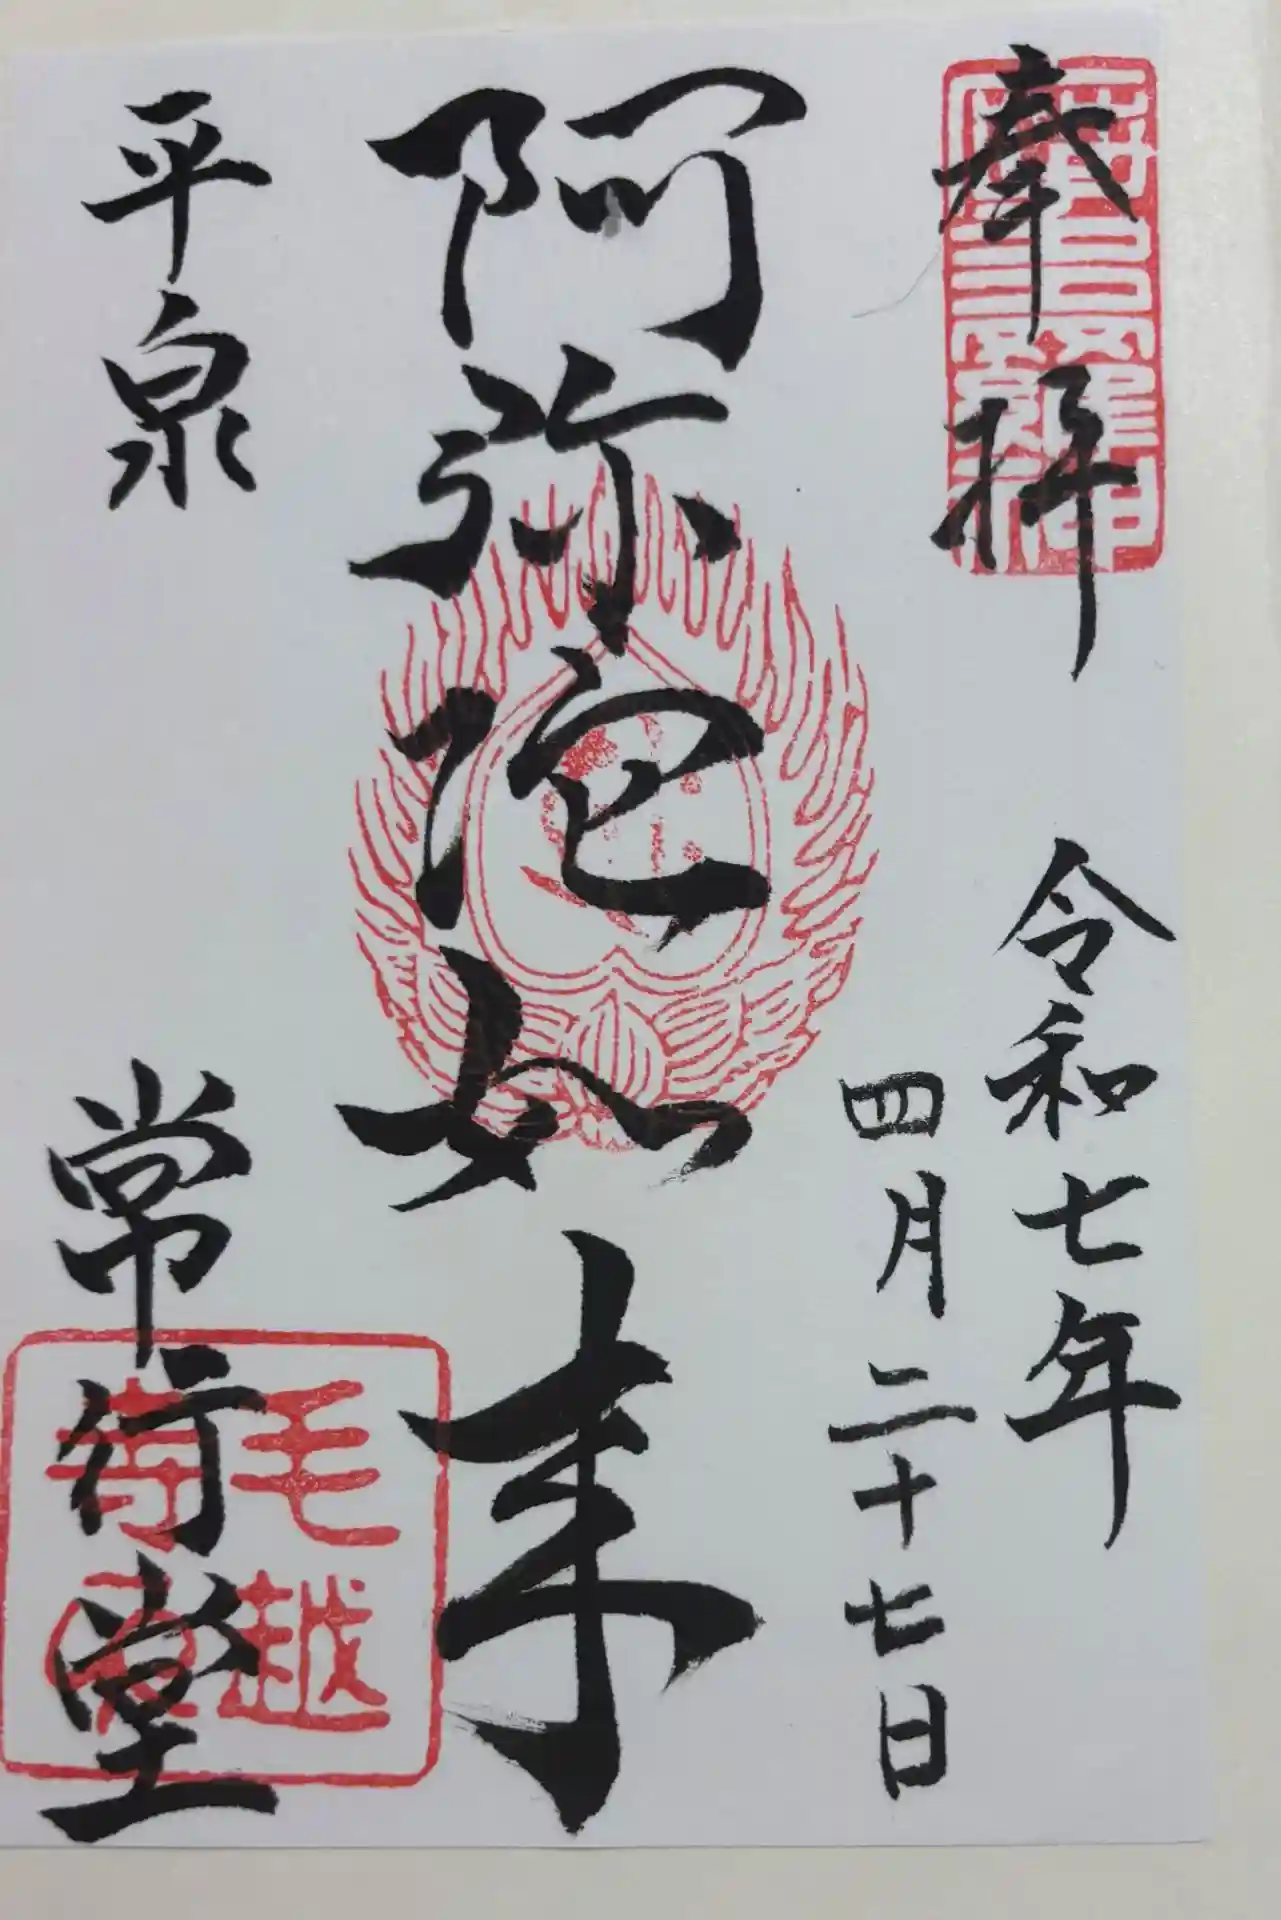 奉拝
令和七年
四月二十七日
阿弥陀如来
平泉
常行堂
毛越
寺印